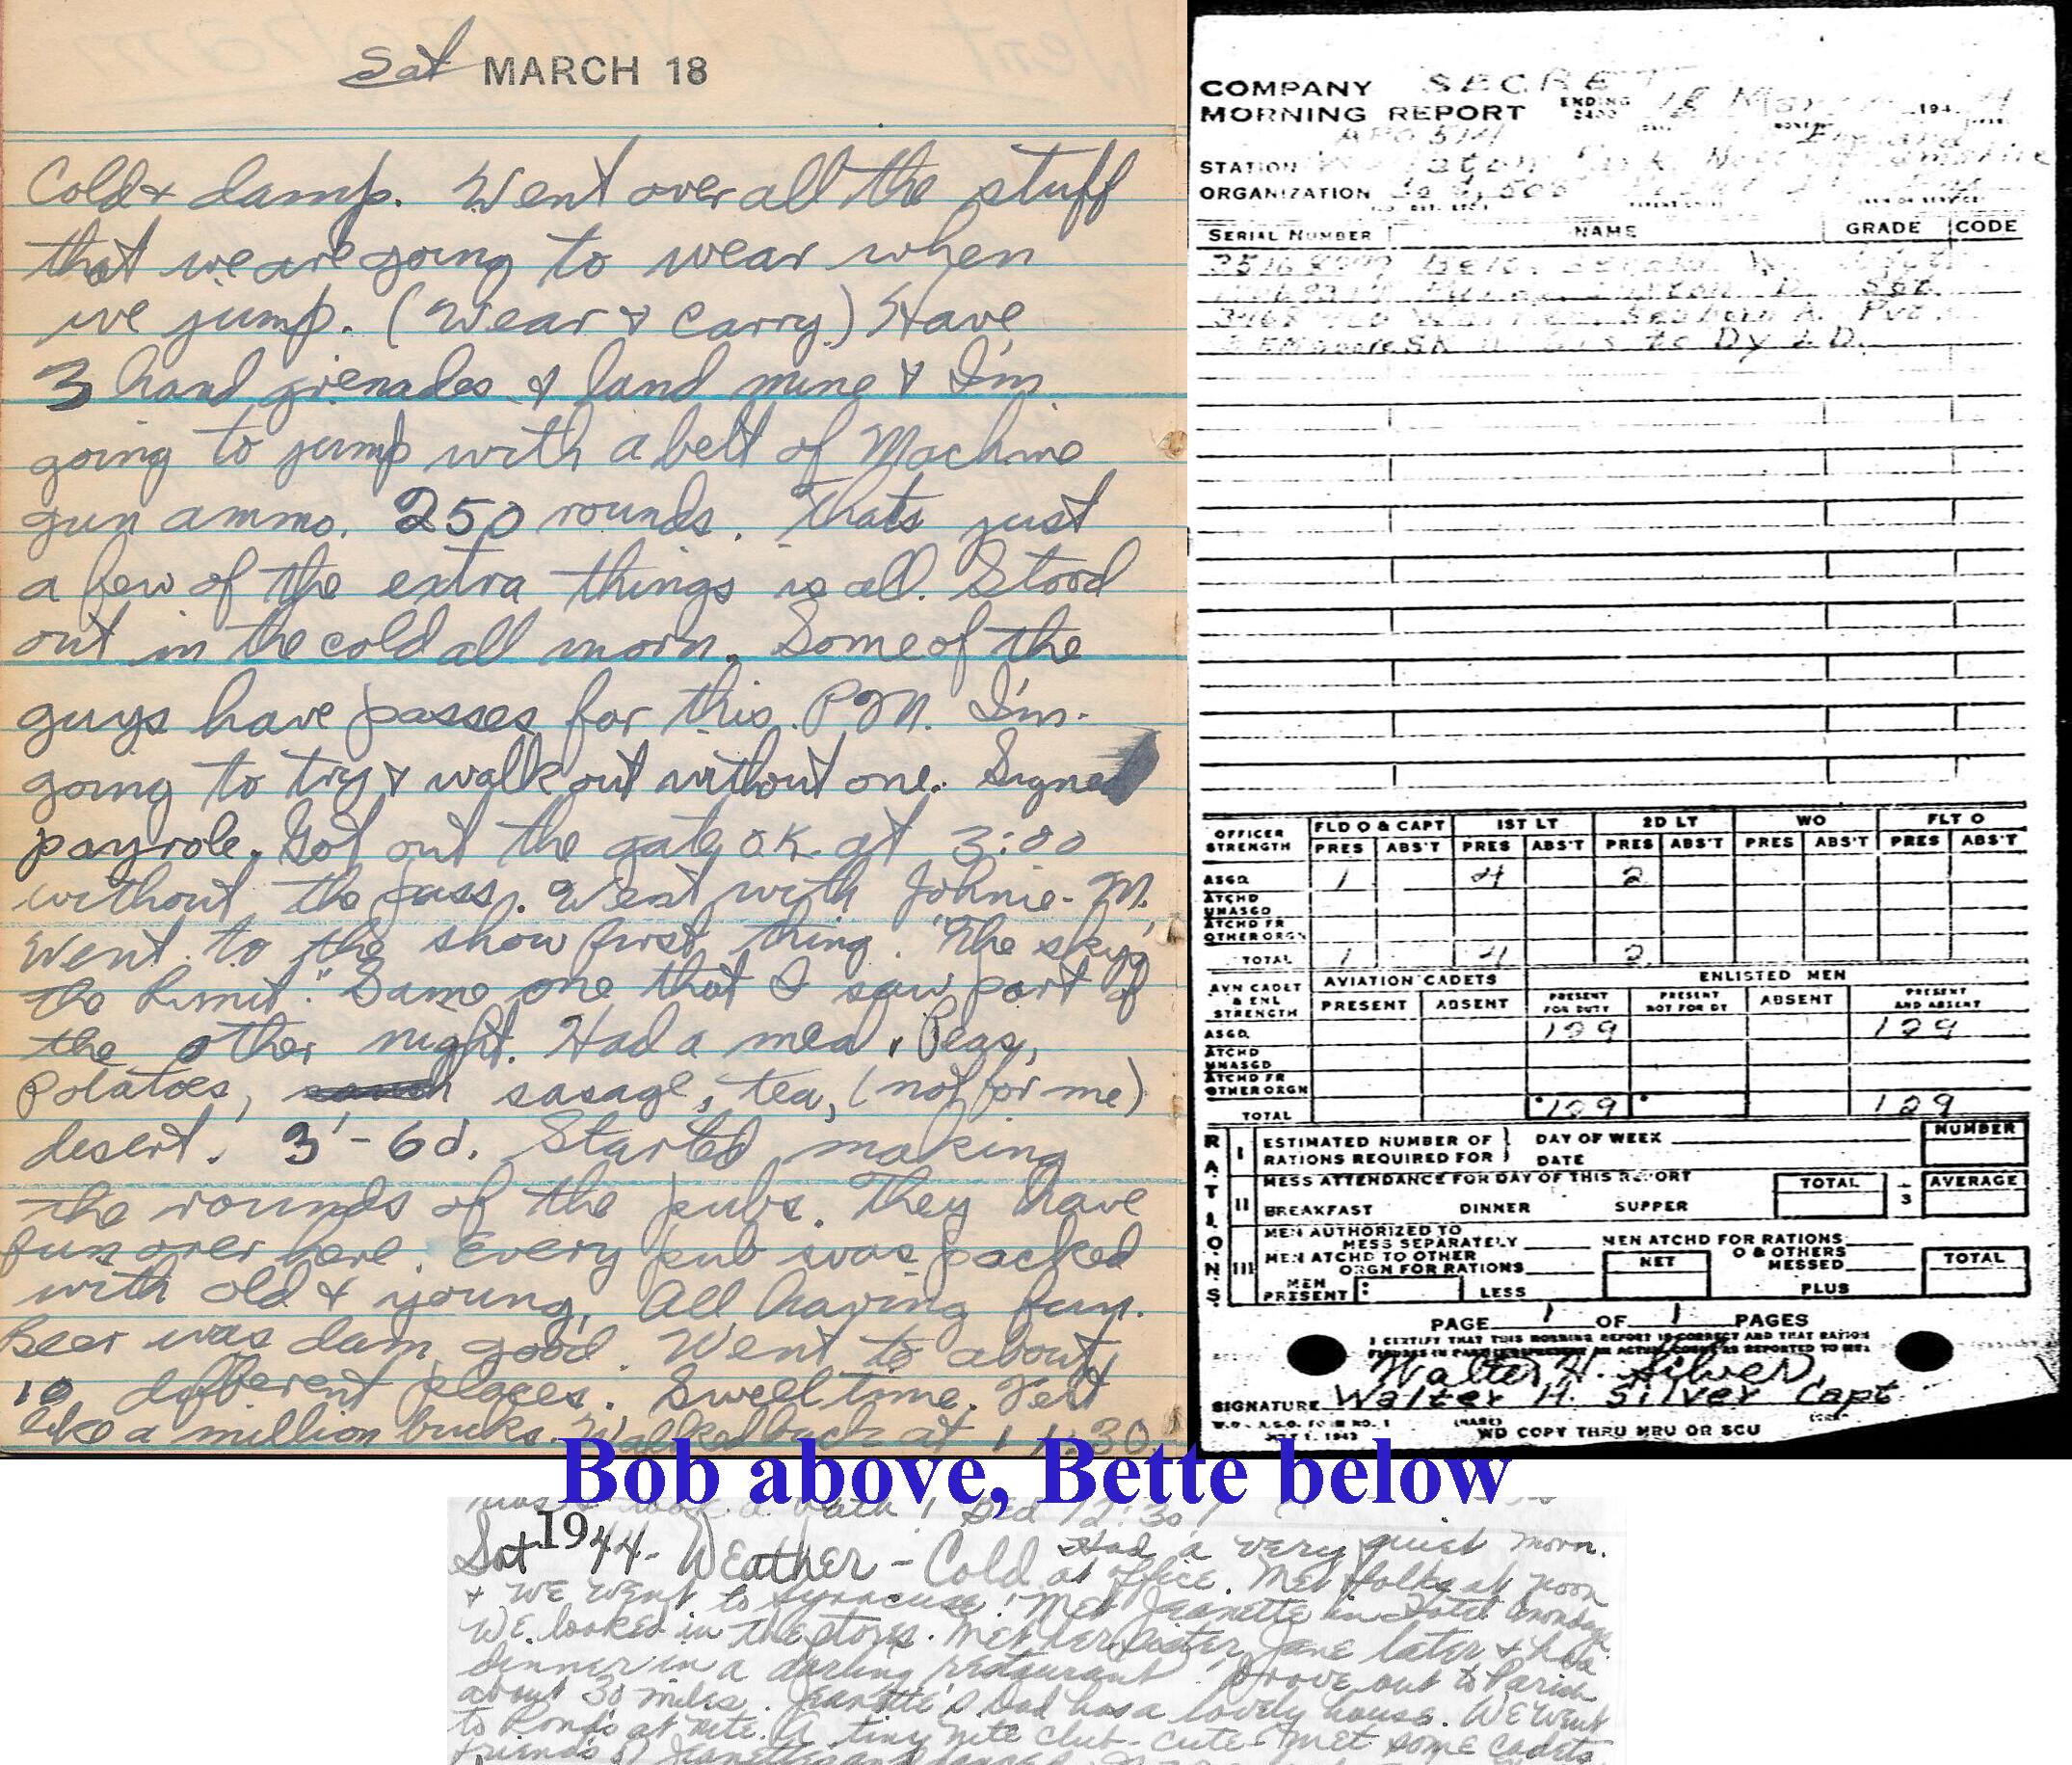 Sat MARCH 18
Cold & damp. Went over all the stuff
that we are going to wear when
we jump. (Wear & carry) Have
3 hand grenades & land mine & I'm
going to jump with a belt of Machine
gun ammo. 250 rounds. Thats just
a few of the extra things is all. Stood
out in the cold all morn. Some of the
guys have passes for this P.M. I'm
going to try & walk out without one. Signed
payrole. Got out the gate OK at 3:00
without the pass. Went with Johnie. M.
Went to the show first thing. "The sky's
the limit." Same one that I saw part of
the other night. Had a meal. Peas,
potatoes, sasage, tea, (not for me)
desert. 3'-6d. Started making
the rounds of the pubs. They have
fun over here. Every pub was packed
with old & young, All having fun.
Beer was dam good. Went to about
10 different places. Swell time. Felt
like a million bucks. Walked back at 11:30
COMPANY SECRET
MORNING REPORT ENDING 2400 18 Mar 194
APO 514 England
STATION
ORGANIZATION
SERIAL NUMBER NAME GRADE CODE
Sgt
Pvt
to Dy
OFFICER STRENGTH FLD O & CAPT 1ST LT 2D LT WO FLT O
PRES ABS'T PRES ABS'T PRES ABS'T PRES ABS'T PRES ABS'T
ASGD 1 4 2
ATCHD UNASGD
ATCHD FR OTHER ORGN
TOTAL 1 4 2
AVN CADET & ENL STRENGTH AVIATION CADETS ENLISTED MEN
PRESENT ABSENT PRESENT FOR DUTY PRESENT NOT FOR DY ABSENT PRESENT AND ABSENT
ASGD 129 129
ATCHD UNASGD
ATCHD FR OTHER ORGN
TOTAL 129 129
RATIONS
I ESTIMATED NUMBER OF RATIONS REQUIRED FOR DAY OF WEEK DATE NUMBER
II MESS ATTENDANCE FOR DAY OF THIS REPORT TOTAL ÷ 3 AVERAGE
BREAKFAST DINNER SUPPER
III MEN AUTHORIZED TO MESS SEPARATELY MEN ATCHD FOR RATIONS
MEN ATCHD TO OTHER ORGN FOR RATIONS NET O & OTHERS MESSED TOTAL
MEN PRESENT: LESS PLUS
PAGE 1 OF 1 PAGES
I CERTIFY THAT THIS MORNING REPORT IS CORRECT AND THAT RATION
Walter H. Silver,
SIGNATURE Walter H. Silver Capt
WD COPY THRU MRU OR SCU
Bob above, Bette below
took a bath! Bed 12:30!
Sat 1944 - Weather - Cold Had a very quiet morn.
at office. Met folks at noon
& we went to Syracuse! Met Jeanette in Hotel Onondaga
We looked in the stores. Met her sister Jane later & had
dinner in a darling restaurant. Drove out to Parish
about 30 miles. Jeanette's dad has a lovely house. We went
to Rond's at nite. A tiny nite club - cute - met some cadets
friends of Jeanette's and danced.